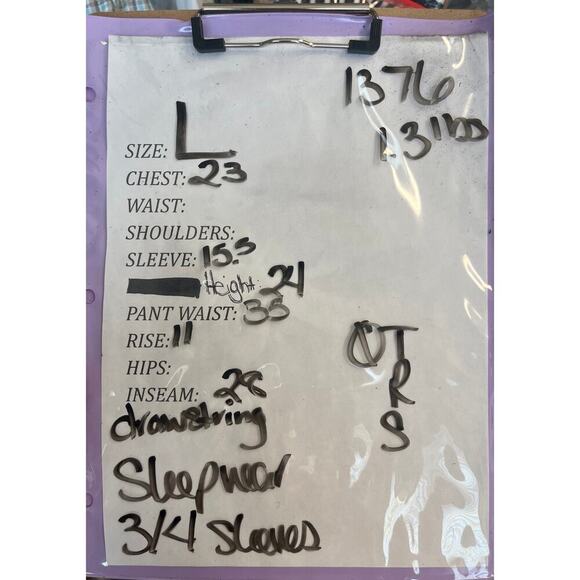 1376
1.3 lbs
SIZE: L
CHEST: 23
WAIST:
SHOULDERS:
SLEEVE: 15.5
Height: 24
PANT WAIST: 35
RISE: 11
HIPS:
INSEAM: 28
T
R
S
drawstring
Sleepwear
3/4 sleeves